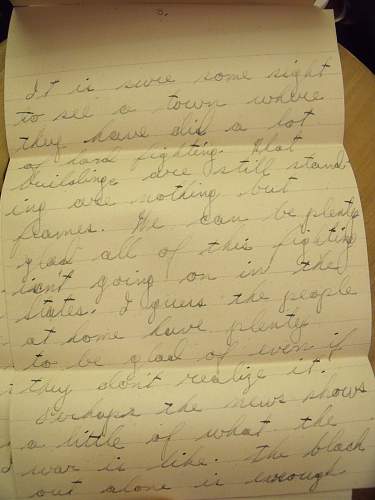 3.
It is sure some sight
to see a town where
they have did a lot
of hard fighting. What
buildings are still stand
ing are nothing but
frames. We can be plenty
glad all of this fighting
isn't going on in the
States. I guess the people
at home have plenty
to be glad of even if
they don't realize it.
Perhaps the news shows
a little of what the
war is like. The black
out alone is enough